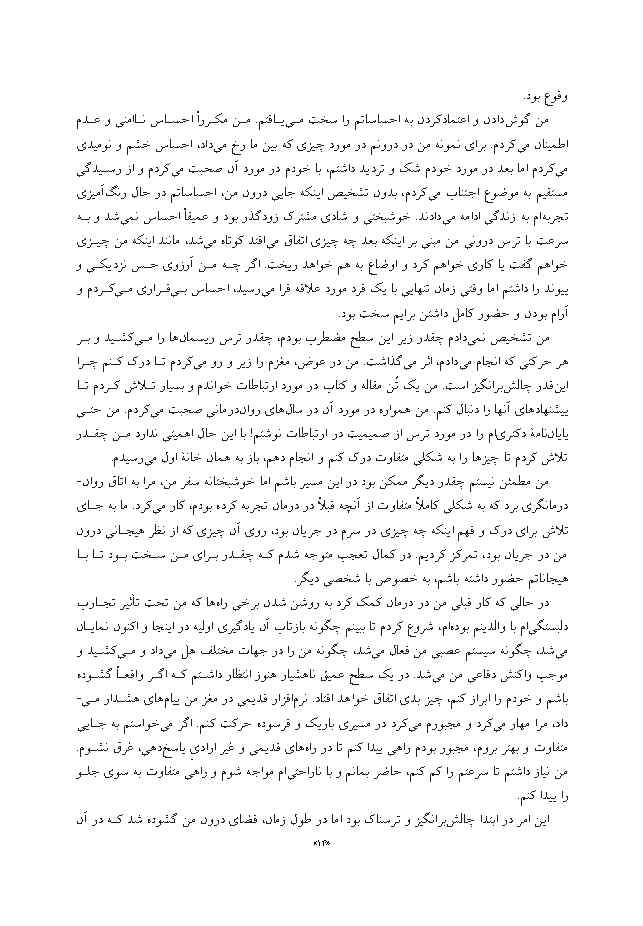 وقوع بود.
من گوش‌دادن و اعتمادکردن به احساساتم را سخت مـی‌یـافتم. مـن مکـرراً احسـاس نـاامنی و عـدم
اطمینان می‌کردم. برای نمونه من در مورد چیزی که بین ما رخ می‌داد، احساس خشم و نومیدی
می‌کردم اما بعد در مورد خودم شک و تردید داشتم، با خودم در مورد آن صحبت می‌کردم و از رسیدگی
مستقیم به موضوع اجتناب می‌کردم، بدون تشخیص اینکه جایی درون من، احساساتم در حال رنگ‌آمیزی
تجربه‌ام به زندگی ادامه می‌دادند. خوشبختی و شادی مشترک زودگذر بود و عمیقاً احساس نمی‌شد و بـه
سرعت با ترس درونی من مبنی بر اینکه بعد چه چیزی اتفاق می‌افتد کوتاه می‌شد، مانند اینکه من چیـزی
خواهم گفت یا کاری خواهم کرد و اوضاع به هم خواهد ریخت. اگر چـه مـن آرزوی حـس نزدیـکی و
پیوند را داشتم اما وقتی زمان تنهایی با یک فرد مورد علاقه فرا می‌رسید، احساس بـی‌قـراری مـی‌کـردم و
آرام بودن و حضور کامل داشتن برایم سخت بود.
من تشخیص نمی‌دادم چقدر زیر این سطح مضطرب بودم، چقدر ترس سیرمان‌ها را مـی‌کشـید و بـر
هر حرکتی که انجام می‌دادم، اثر می‌گذاشت. در عوض، من مغزم را زیر و رو می‌کردم تـا درک کنـم چـرا
این‌قدر چالش‌برانگیز است. من یک تُن مقاله و کتاب در مورد ارتباطات خواندم و بسیار تـلاش کـردم تـا
پیشنهادهای آنها را دنبال کنم. من همواره در مورد آن در سال‌های روان‌درمانی صحبت می‌کردم. من حتـی
پایان‌نامهٔ دکتری‌ام را در مورد ترس از صمیمیت در ارتباطات نوشتم! با این حال همینی ندارد مـن چقـدر
تلاش کردم تا چیزها را به شکلی درک کنم و انجام دهم، باز به همان خانهٔ اول می‌رسیدم.
من مطمئن نیستم چقدر دیگر ممکن بود من در این مسیر باشم اما خوشبختانه سفر من، مرا به اتاق روان-
درمانگری برد که به شکلی کاملاً متفاوت از آنچه قبلاً در درمان تجربه کرده بودم، کار می‌کرد. ما به جـای
تلاش برای درک و فهم اینکه چه چیزی در مورد من در جریان بود، روی آن چیزی که از نظر هیجـانی درون
من در جریان بود، تمرکز کردیم. در کمال تعجب متوجه شدم کـه چقدر بـرای مـن سـخت بـود تـا بـا
هیجاناتم حضور داشته باشم، به خصوص با شخصی دیگر.
در حالی که کار قبلی من در درمان کمک کرد به روشن شدن برخی راه‌ها که من تحت تأثیر تجـارب
دلبستگی‌ام با والدینم بوده‌ام، شروع کردم تا ببینم چگونه بازتاب آن یادگیری اولیه در اینجا و اکنون نمایـان
می‌شد، چگونه سیستم عصبی من فعال می‌شد، چگونه من را در جهات مختلف هل می‌داد و مـی‌کشـید و
موجب واکنش دفاعی من می‌شد. در یک سطح عمیق ناهشیار هنوز انتظار داشـتم کـه اگـر واقعـاً گشـوده
باشم و خودم را ابراز کنم، چیز بدی اتفاق خواهد افتاد. نرم‌افزار قدیمی در مغز من پیام‌های هشـدار مـی-
داد، مرا مهار می‌کرد و مجبورم می‌کرد در مسیری باریک و فرسوده حرکت کنم. اگر می‌خواستم به جـایی
متفاوت و بهتر بروم، مجبور بودم راهی پیدا کنم تا در راه‌های قدیمی و غیر ارادی پاسخ‌دهی، غرق نشـوم.
من نیاز داشتم تا سرعتم را کم کنم، حاضر بمانم و با ناراحتی‌ام مواجه شوم و راهی متفاوت به سوی جلـو
را پیدا کنم.
این امر در ابتدا چالش‌برانگیز و ترسناک بود اما در طول زمان، فضای درون من گشوده شد کـه در آن
«۱۲»